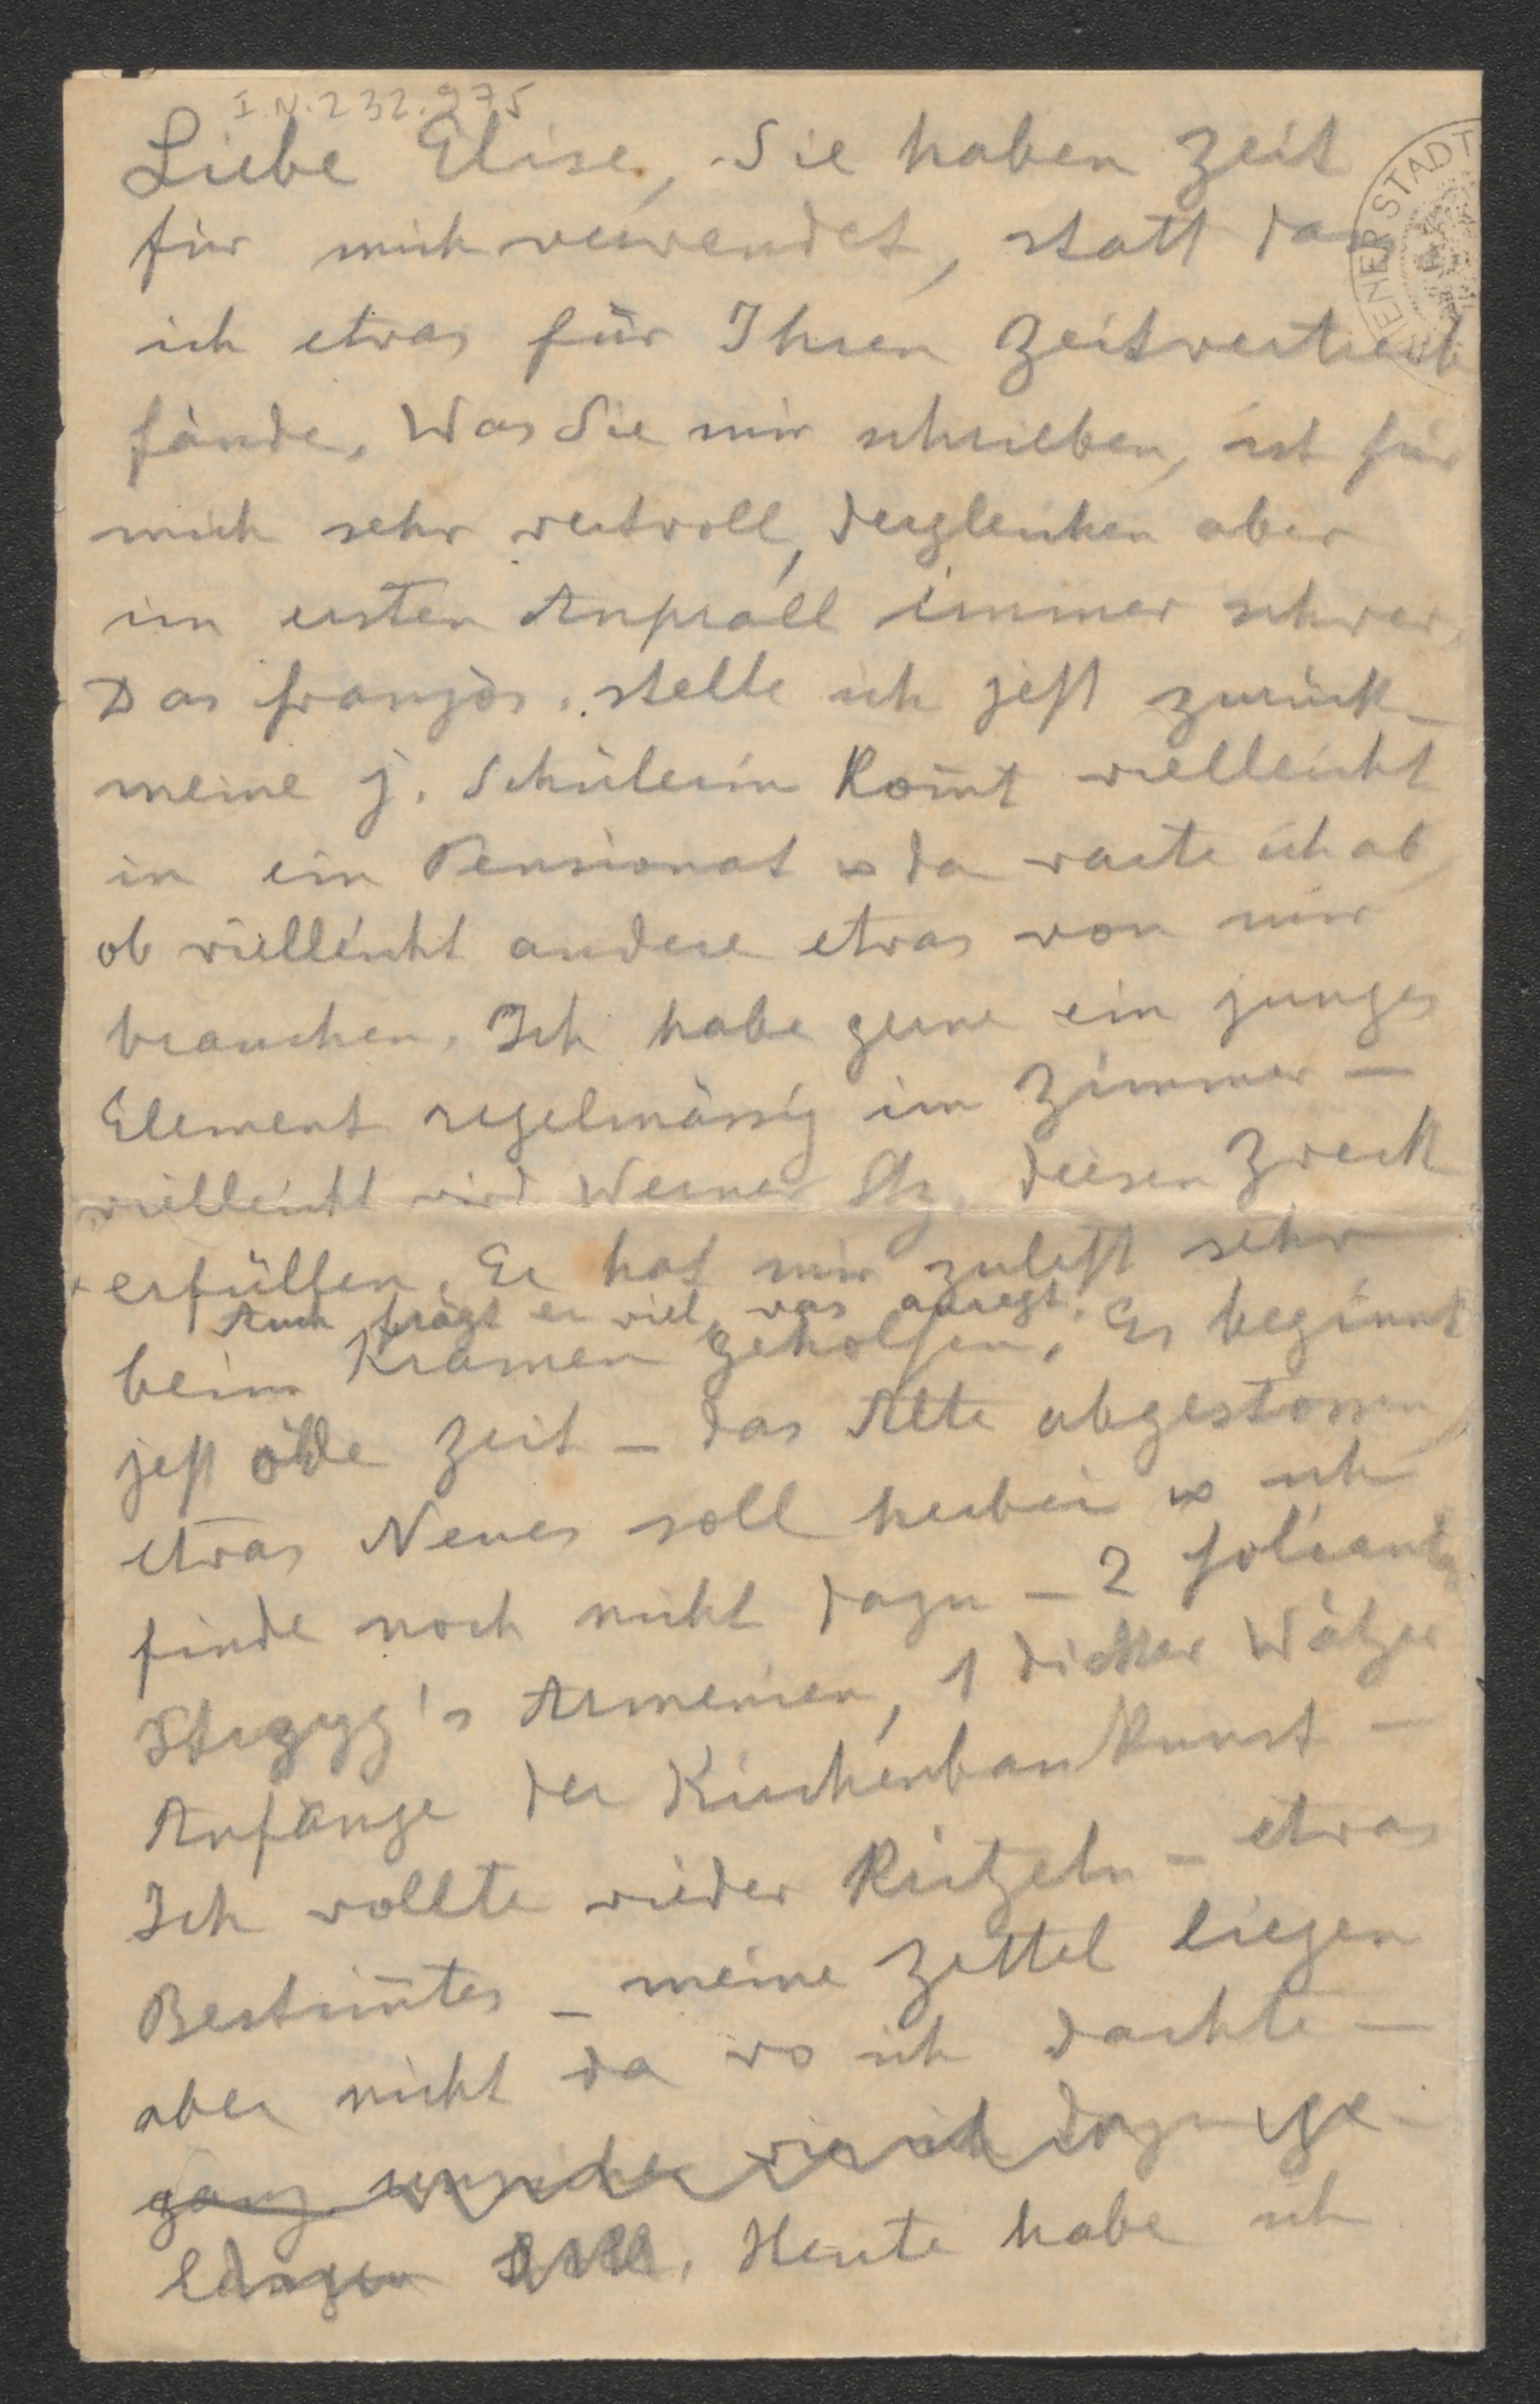 I.N. 232.975
Liebe Elise, Sie haben Zeit
für mich verwendet, statt dass
ich etwas für Ihren Zeitvertreib
fände. Was Sie mir schrieben, ist für
mich sehr wertvoll, dergleichen aber
im ersten Anprall immer schwer.
Das französ. stelle ich jetzt zurück –
meine j. Schülerin kom̄t vielleicht
in ein Pensionat u da warte ich ab
ob vielleicht andere etwas von mir
brauchen. Ich habe gerne ein junges
Element regelmässig im Zimmer –
vielleicht wird Werner diesen Zweck
erfüllen. Er hat mir zuletzt sehr
Auch frägt er viel, was anregt.
beim Kramen geholfen. Es beginnt
jetzt öde Zeit – das Alte abgestossen,
etwas Neues soll herbei u ich
finde noch nicht dazu – 2 Folianten
Strzyg's Armenien, 1 dicker Wälzer
Anfänge der Kirchenbaukunst –
Ich wollte wieder kritzeln – etwas
Bestim̄tes – meine Zettel liegen
aber nicht da wo ich dachte –
ganz unsicher wie ich dazu ge-
langen soll. Heute habe ich
WIENER STADT